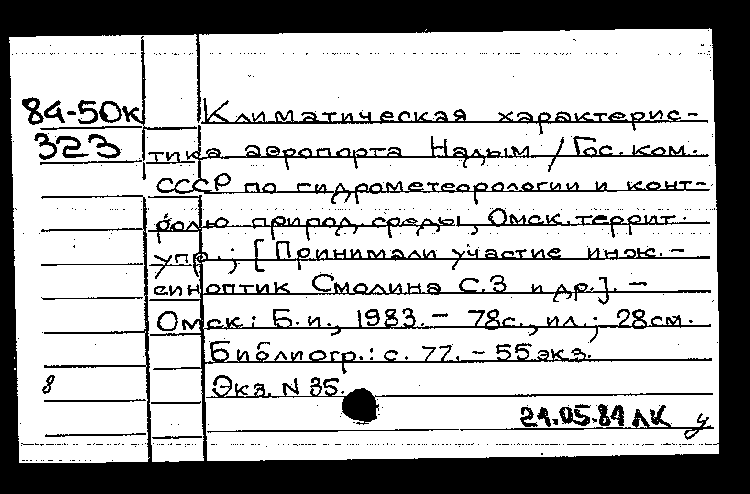 84-50к Климатическая характерис-
323 тика аэропорта Надым / Гос. ком.
СССР по гидрометеорологии и конт-
ролю природ. среды, Омск. террит.
упр.; [Принимали участие инж.-
синоптик Смолина С.З и др.]. -
Омск: Б.и., 1983. - 78с., ил.; 28см.
Библиогр.: с. 77. - 55 экз.
8 Экз. N 35.
21.05.84 ЛК у